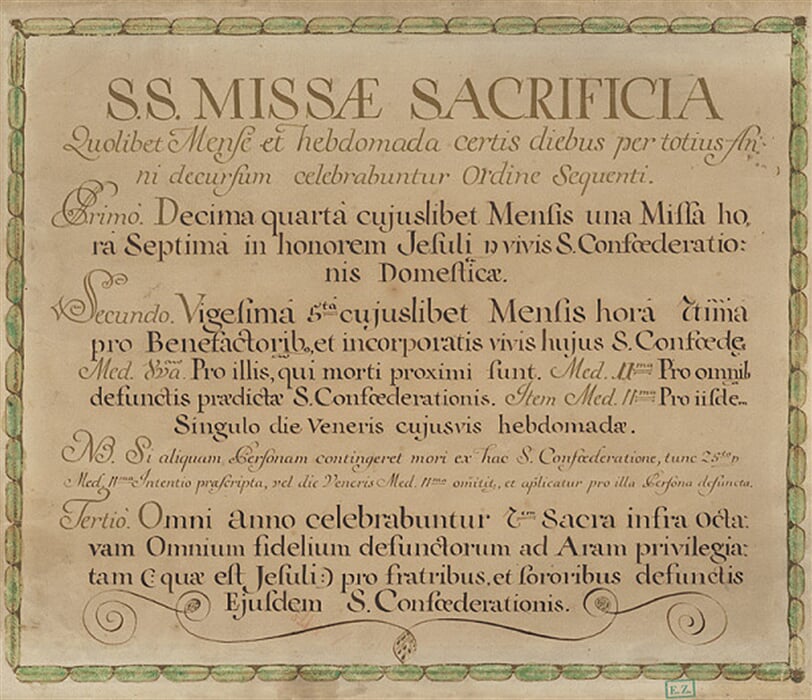 S.S. MISSÆ SACRIFICIA
Quolibet Mense et hebdomada certis diebus per totius An-
ni decursum celebrabuntur Ordine Sequenti.
Primò. Decima quartâ cujuslibet Mensis una Missâ ho,
râ Septimâ in honorem Jesuli p vivis S. Confœderatio:
nis Domesticæ.
Secundo. Vigesimâ 5tâ cujuslibet Mensis horâ 7timâ
pro Benefactorib, et incorporatis vivis hujus S. Confœde,
Med. 8vâ. Pro illis, qui morti proximi sunt. Med. 11ma Pro omnib,
defunctis prædictæ S. Confœderationis. Item Med. 11ma Pro iisde
Singulo die Veneris cujusvis hebdomadæ.
NB. Si aliquam Personam contingeret mori ex hac S. Confœderatione, tunc 25ta p
Med. 11ma Intentio præscripta, vel die Veneris Med. 11mo omittit, et aplicatur pro illa Persona defuncta.
Tertiò. Omni anno celebrabuntur 7em Sacra infra octa:
vam Omnium fidelium defunctorum ad Aram privilegia:
tam (: quæ est Jesuli :) pro fratribus, et sororibus defunctis
Ejusdem S. Confœderationis.
E.Z.